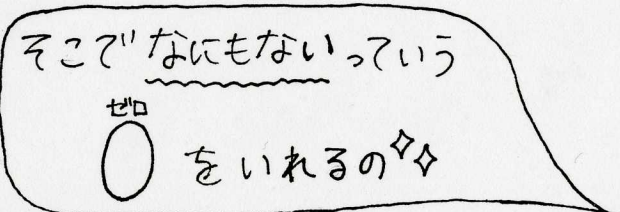 そこでなにもないっていう
ゼロ
0をいれるの